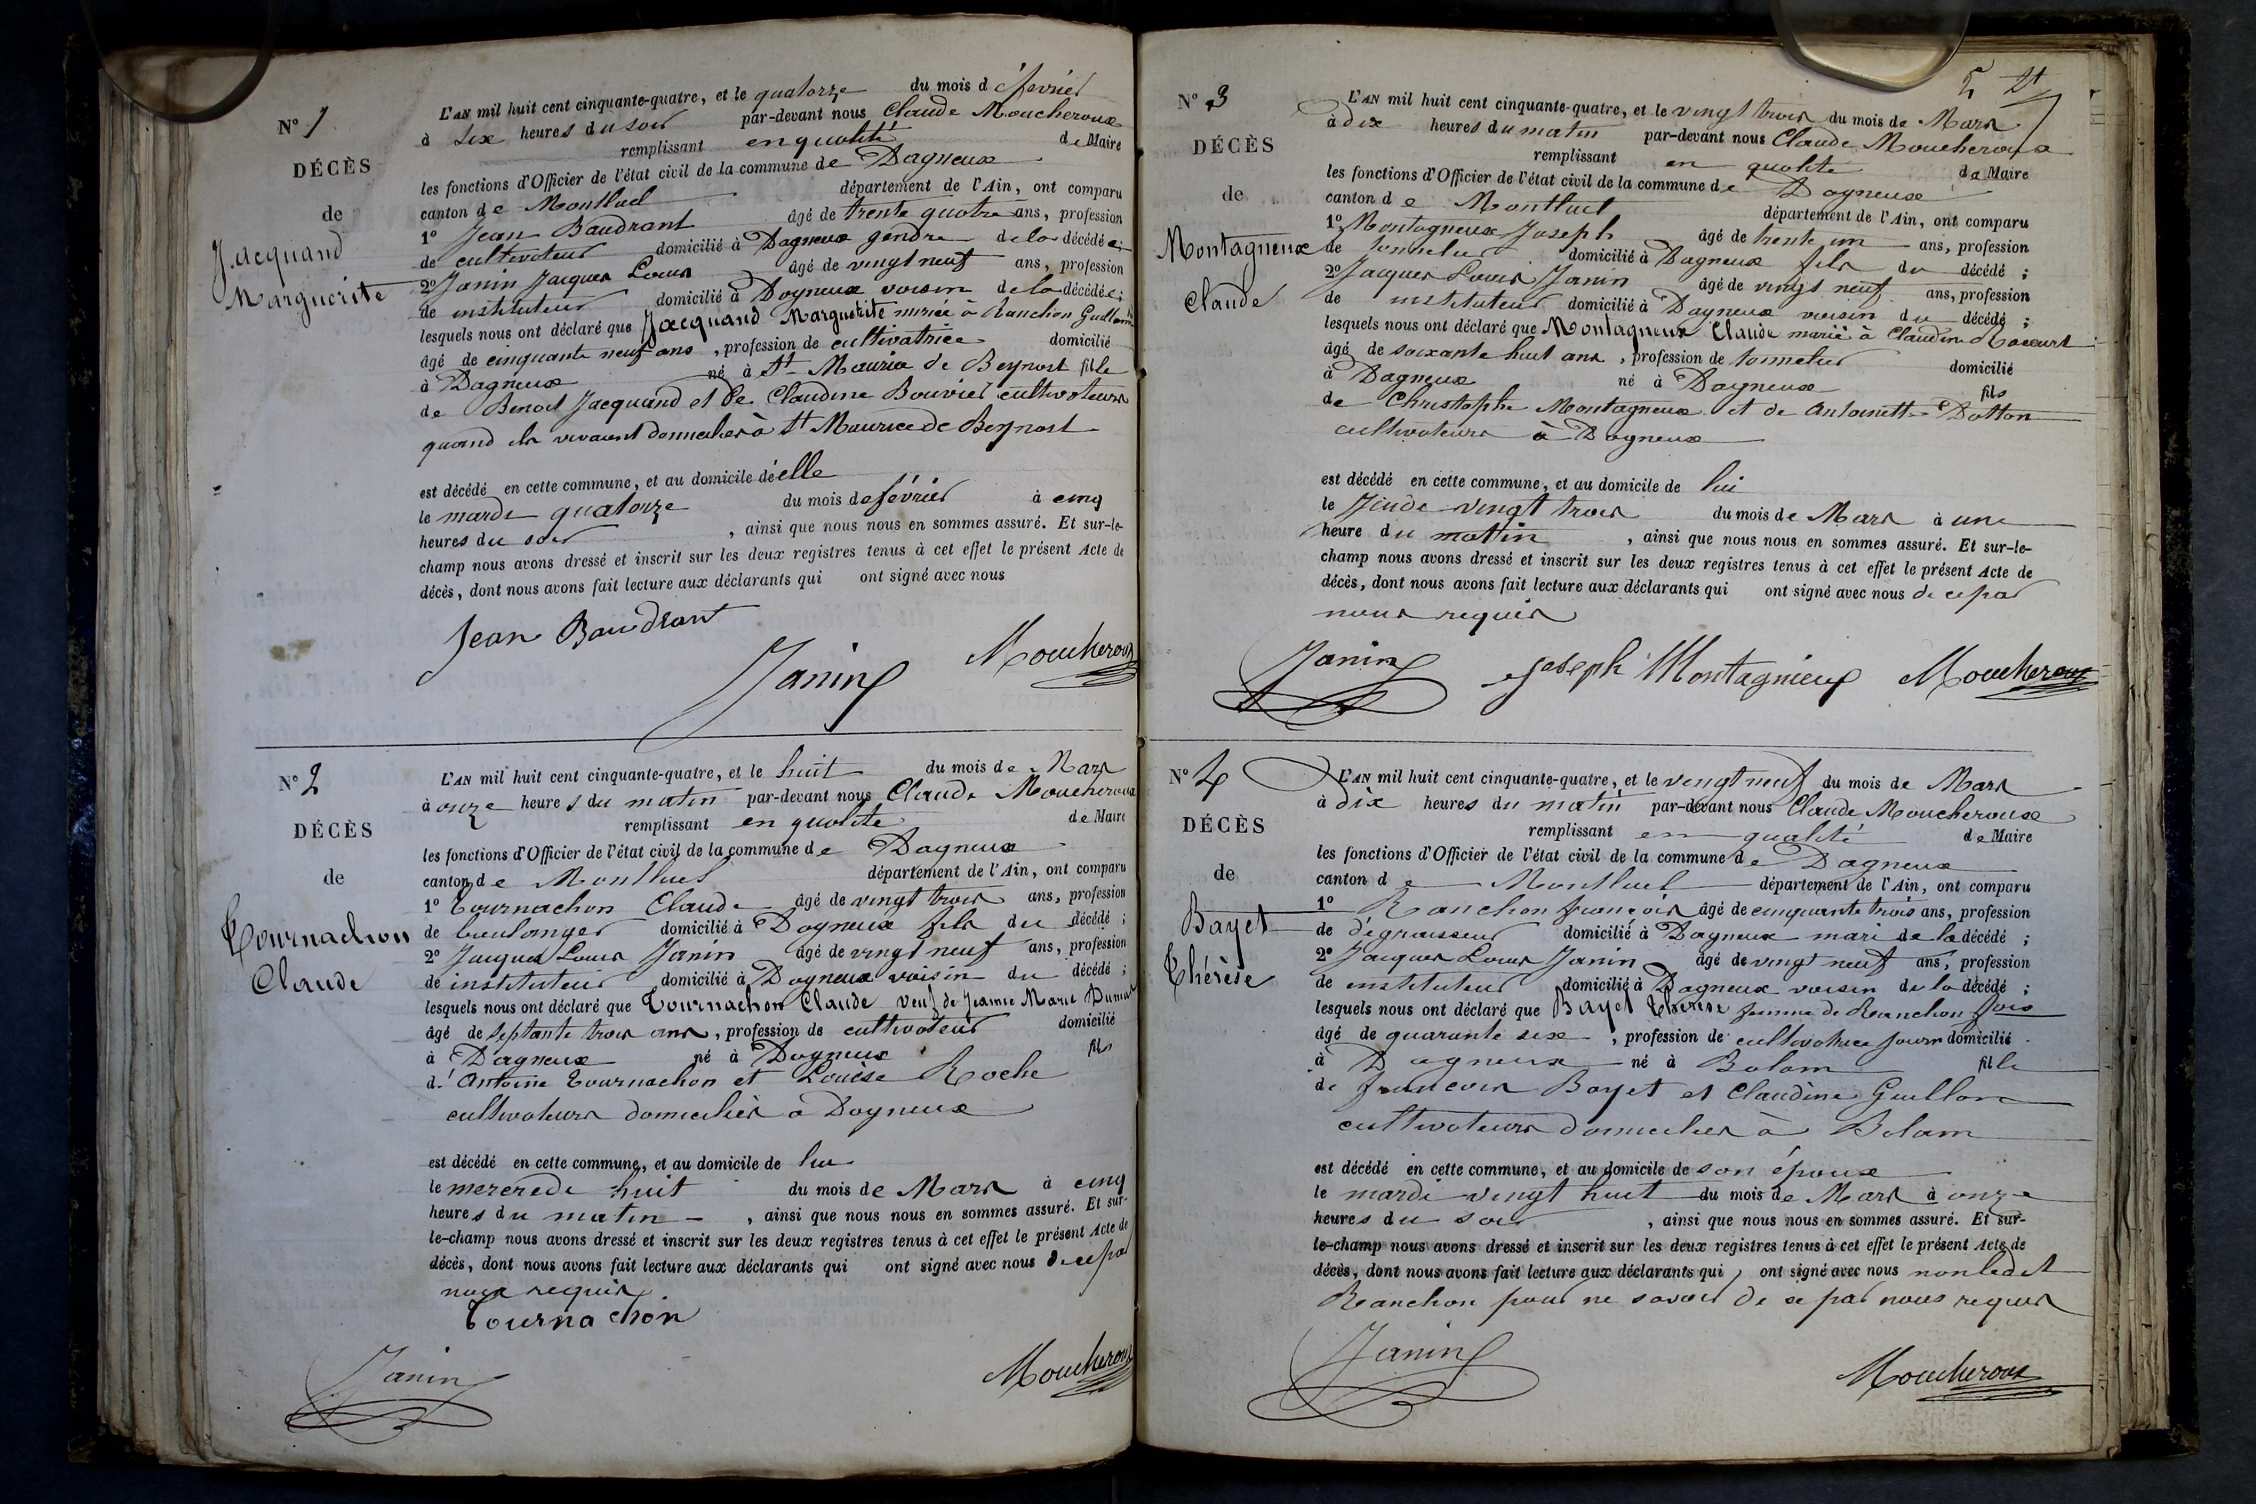 N° 1
DÉCÈS
de
Jacquand
Marguerite
L'AN mil huit cent cinquante-quatre, et le quatorze du mois de février
à six heures du soir par-devant nous Claude Moucheroux
remplissant en qualité de Maire
les fonctions d'Officier de l'état civil de la commune de Dagneux
canton de Montluel département de l'Ain, ont comparu
1° Jean Baudrant âgé de trente quatre ans, profession
de cultivateur domicilié à Dagneux gendre de la décédée;
2° Janin Jacques Louis âgé de vingt neuf ans, profession
de instituteur domicilié à Dagneux voisin de la décédée;
lesquels nous ont déclaré que Jacquand Marguerite mariée à Ranchon
âgé de cinquante neuf ans, profession de cultivatrice domicilié
à Dagneux né à St Maurice de Beynost fille
de Benoit Jacquand et de Claudine Bouvier cultivateurs
quand ils vivaient domiciliés à St Maurice de Beynost
est décédé en cette commune, et au domicile d'elle
le mardi quatorze du mois de février à cinq
heures du soir, ainsi que nous nous en sommes assuré. Et sur-le-
champ nous avons dressé et inscrit sur les deux registres tenus à cet effet le présent Acte de
décès, dont nous avons fait lecture aux déclarants qui ont signé avec nous
Jean Baudrant
Janin
Moucheroux
N° 2
DÉCÈS
de
Tournachon
Claude
L'AN mil huit cent cinquante-quatre, et le huit du mois de Mars
à onze heures du matin par-devant nous Claude Moucheroux
remplissant en qualité de Maire
les fonctions d'Officier de l'état civil de la commune de Dagneux
canton de Montluel département de l'Ain, ont comparu
1° Tournachon Claude âgé de vingt trois ans, profession
de boulanger domicilié à Dagneux fils du décédé;
2° Jacques Louis Janin âgé de vingt neuf ans, profession
de instituteur domicilié à Dagneux voisin du décédé;
lesquels nous ont déclaré que Tournachon Claude veuf de Jeanne Marie Dumas
âgé de septante trois ans, profession de cultivateur domicilié
à Dagneux né à Dagneux fils
d' Antoine Tournachon et Louise Roche
cultivateurs domiciliés à Dagneux
est décédé en cette commune, et au domicile de lui
le mercredi huit du mois de Mars à cinq
heures du matin, ainsi que nous nous en sommes assuré. Et sur-
le-champ nous avons dressé et inscrit sur les deux registres tenus à cet effet le présent Acte de
décès, dont nous avons fait lecture aux déclarants qui ont signé avec nous de ce par
nous requis
Tournachon
Janin
Moucheroux
5
N° 3
DÉCÈS
de
Montagneux
Claude
L'AN mil huit cent cinquante-quatre, et le vingt trois du mois de Mars
à dix heures du matin par-devant nous Claude Moucheroux
remplissant en qualité de Maire
les fonctions d'Officier de l'état civil de la commune de Dagneux
canton de Montluel département de l'Ain, ont comparu
1° Montagneux Joseph âgé de trente un ans, profession
de tonnelier domicilié à Dagneux fils du décédé;
2° Jacques Louis Janin âgé de vingt neuf ans, profession
de instituteur domicilié à Dagneux voisin du décédé;
lesquels nous ont déclaré que Montagneux Claude marié à Claudine
âgé de soixante huit ans, profession de tonnelier domicilié
à Dagneux né à Dagneux fils
de Christophe Montagneux et de Antoinette Dotton
cultivateurs à Dagneux
est décédé en cette commune, et au domicile de lui
le Jeudi vingt trois du mois de Mars à une
heure du matin, ainsi que nous nous en sommes assuré. Et sur-le-
champ nous avons dressé et inscrit sur les deux registres tenus à cet effet le présent Acte de
décès, dont nous avons fait lecture aux déclarants qui ont signé avec nous de ce par
nous requis
Janin Joseph Montagnieux Moucheroux
N° 4
DÉCÈS
de
Bayet
Thérèse
L'AN mil huit cent cinquante-quatre, et le vingt neuf du mois de Mars
à dix heures du matin par-devant nous Claude Moucheroux
remplissant en qualité de Maire
les fonctions d'Officier de l'état civil de la commune de Dagneux
canton de Montluel département de l'Ain, ont comparu
1° Ranchon françois âgé de cinquante trois ans, profession
de dégraisseur domicilié à Dagneux mari de la décédé;
2° Jacques Louis Janin âgé de vingt neuf ans, profession
de instituteur domicilié à Dagneux voisin de la décédé;
lesquels nous ont déclaré que Bayet Thérèse femme de Ranchon fçois
âgé de quarante six, profession de cultivatrice domicilié
à Dagneux né à Bolom fille
de francois Bayet et Claudine Guillon
cultivateurs domiciliés à Belam
est décédé en cette commune, et au domicile de son époux
le mardi vingt huit du mois de Mars à onze
heures du soir, ainsi que nous nous en sommes assuré. Et sur-
le-champ nous avons dressé et inscrit sur les deux registres tenus à cet effet le présent Acte de
décès, dont nous avons fait lecture aux déclarants qui ont signé avec nous non ledit
Ranchon pour ne savoir de ce par nous requis
Janin
Moucheroux